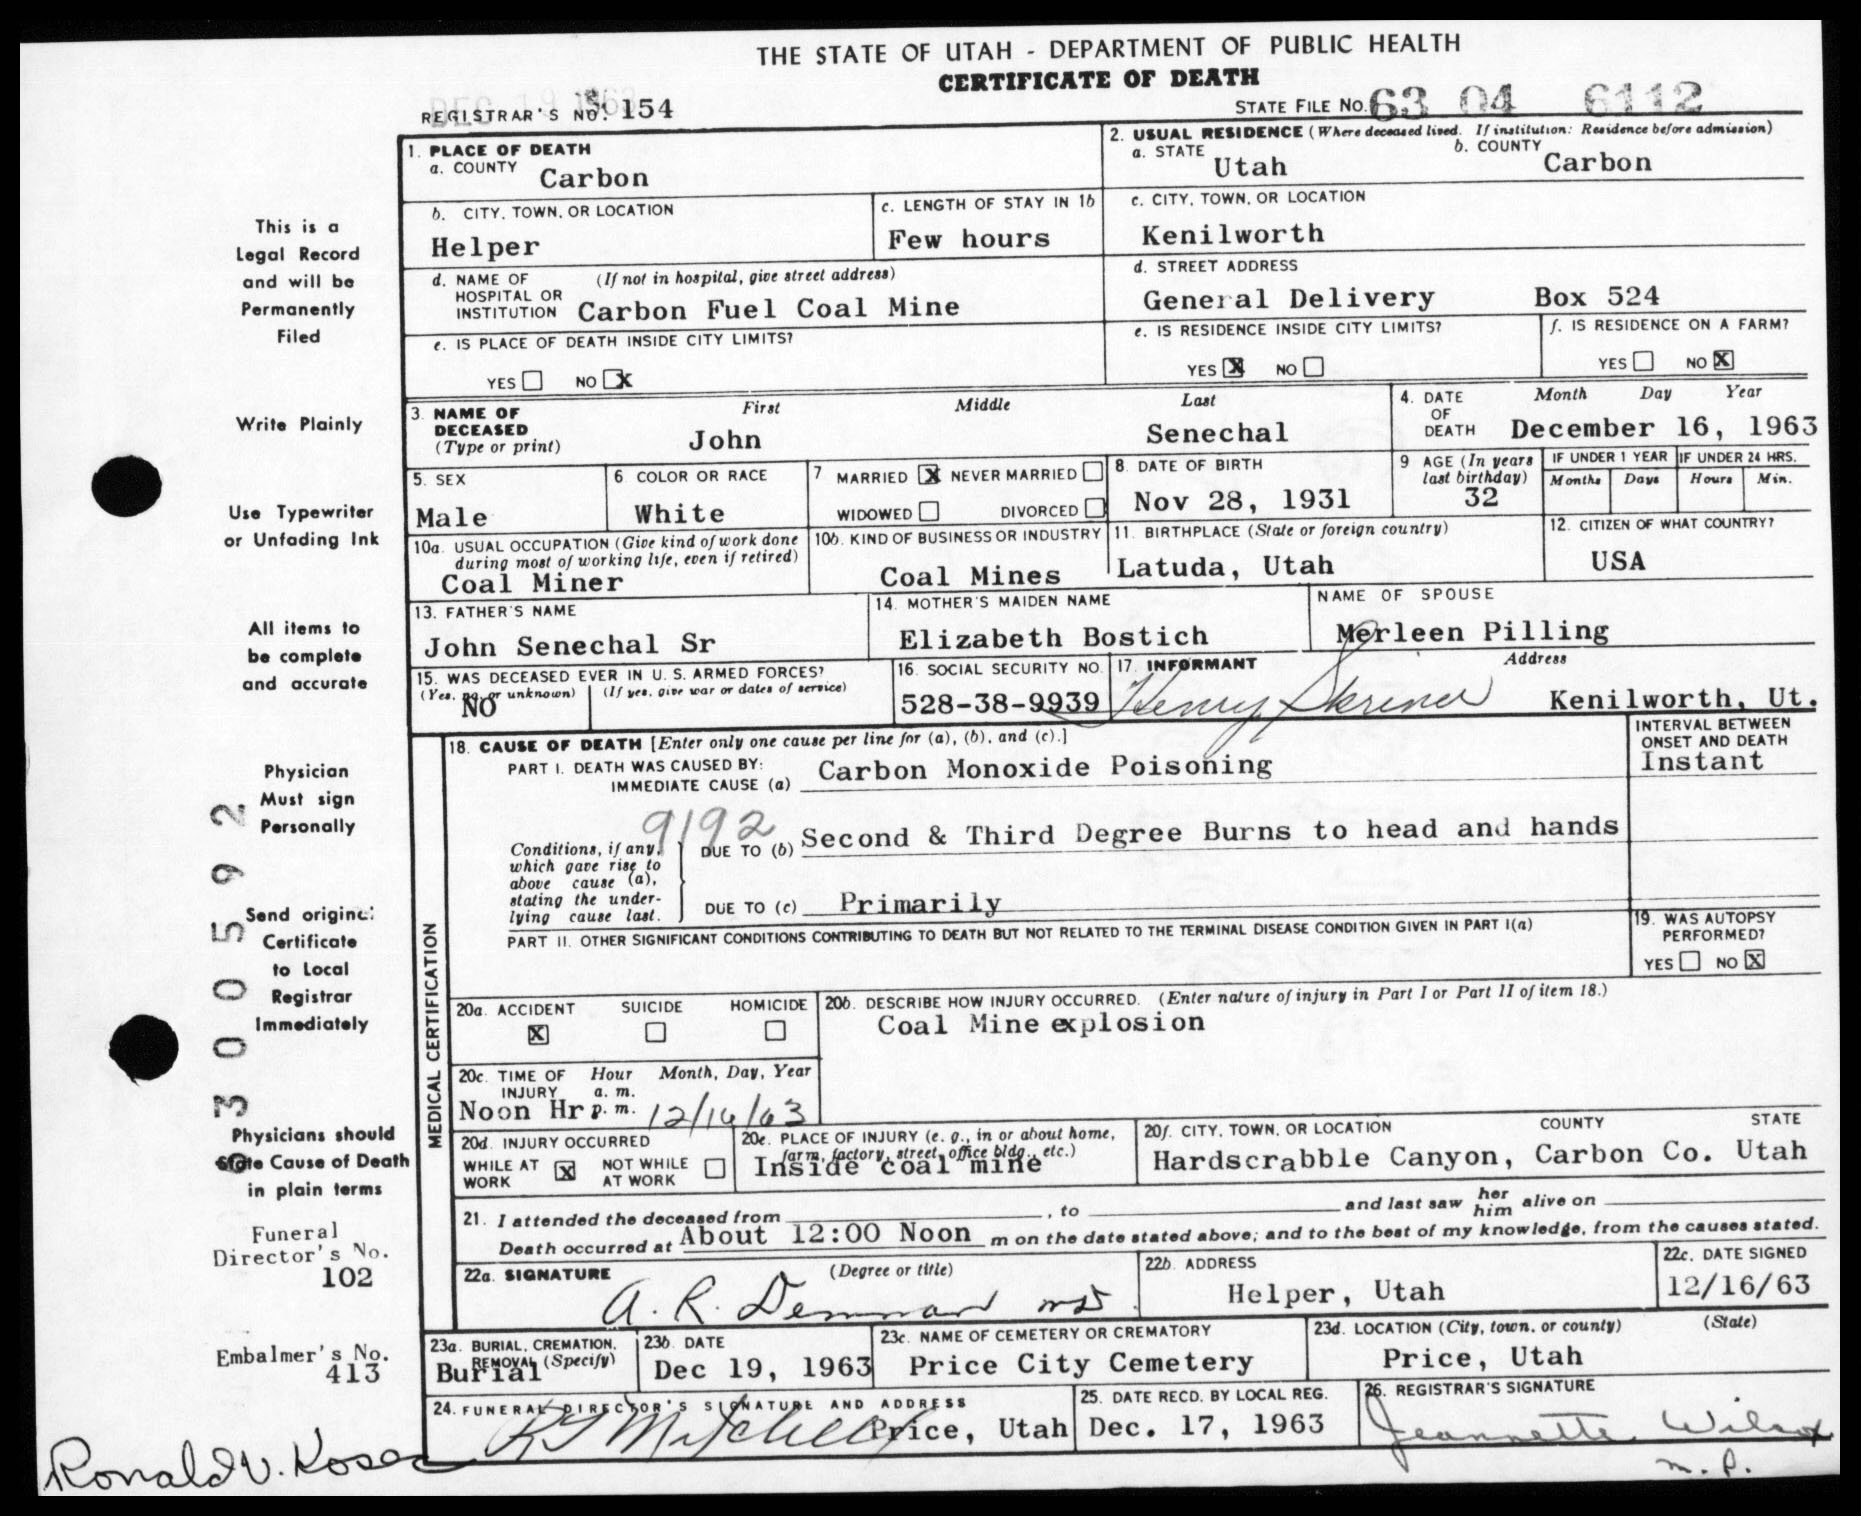 THE STATE OF UTAH - DEPARTMENT OF PUBLIC HEALTH
CERTIFICATE OF DEATH
DEC 19 1963
REGISTRAR'S NO. 154
STATE FILE NO. 63 04 6112
1. PLACE OF DEATH
a. COUNTY Carbon
2. USUAL RESIDENCE (Where deceased lived. If institution: Residence before admission)
a. STATE Utah b. COUNTY Carbon
b. CITY, TOWN, OR LOCATION Helper
c. LENGTH OF STAY IN 1b Few hours
c. CITY, TOWN, OR LOCATION Kenilworth
d. NAME OF HOSPITAL OR INSTITUTION (If not in hospital, give street address) Carbon Fuel Coal Mine
d. STREET ADDRESS General Delivery Box 524
e. IS PLACE OF DEATH INSIDE CITY LIMITS?
YES NO X
e. IS RESIDENCE INSIDE CITY LIMITS?
YES X NO
f. IS RESIDENCE ON A FARM?
YES NO X
3. NAME OF DECEASED (Type or print)
First Middle Last
John Senechal
4. DATE OF DEATH Month Day Year
December 16, 1963
5. SEX Male
6 COLOR OR RACE White
7 MARRIED X NEVER MARRIED
WIDOWED DIVORCED
8. DATE OF BIRTH Nov 28, 1931
9 AGE (In years last birthday) 32
IF UNDER 1 YEAR Months Days
IF UNDER 24 HRS. Hours Min.
10a. USUAL OCCUPATION (Give kind of work done during most of working life, even if retired) Coal Miner
10b. KIND OF BUSINESS OR INDUSTRY Coal Mines
11. BIRTHPLACE (State or foreign country) Latuda, Utah
12. CITIZEN OF WHAT COUNTRY? USA
13. FATHER'S NAME John Senechal Sr
14. MOTHER'S MAIDEN NAME Elizabeth Bostich
NAME OF SPOUSE Merleen Pilling
15. WAS DECEASED EVER IN U. S. ARMED FORCES?
(Yes, no, or unknown) (If yes, give war or dates of service)
NO
16. SOCIAL SECURITY NO. 528-38-9939
17. INFORMANT Address
Henry Skriner Kenilworth, Ut.
MEDICAL CERTIFICATION
18. CAUSE OF DEATH [Enter only one cause per line for (a), (b), and (c).]
INTERVAL BETWEEN ONSET AND DEATH
PART I. DEATH WAS CAUSED BY:
IMMEDIATE CAUSE (a) Carbon Monoxide Poisoning Instant
9192
Conditions, if any, which gave rise to above cause (a), stating the underlying cause last.
DUE TO (b) Second & Third Degree Burns to head and hands
DUE TO (c) Primarily
PART II. OTHER SIGNIFICANT CONDITIONS CONTRIBUTING TO DEATH BUT NOT RELATED TO THE TERMINAL DISEASE CONDITION GIVEN IN PART I(a)
19. WAS AUTOPSY PERFORMED?
YES NO X
20a. ACCIDENT SUICIDE HOMICIDE
X
20b. DESCRIBE HOW INJURY OCCURRED. (Enter nature of injury in Part I or Part II of item 18.)
Coal Mine explosion
20c. TIME OF INJURY Hour a. m. p. m. Month, Day, Year
Noon Hr 12/16/63
20d. INJURY OCCURRED
WHILE AT WORK X NOT WHILE AT WORK
20e. PLACE OF INJURY (e. g., in or about home, farm, factory, street, office bldg., etc.)
Inside coal mine
20f. CITY, TOWN, OR LOCATION COUNTY STATE
Hardscrabble Canyon, Carbon Co. Utah
21. I attended the deceased from , to and last saw her him alive on
Death occurred at About 12:00 Noon m on the date stated above; and to the best of my knowledge, from the causes stated.
22a. SIGNATURE (Degree or title)
A. R. Demman MD.
22b. ADDRESS Helper, Utah
22c. DATE SIGNED 12/16/63
23a. BURIAL, CREMATION, REMOVAL (Specify) Burial
23b. DATE Dec 19, 1963
23c. NAME OF CEMETERY OR CREMATORY Price City Cemetery
23d. LOCATION (City, town, or county) (State) Price, Utah
24. FUNERAL DIRECTOR'S SIGNATURE AND ADDRESS
Mitchell Price, Utah
25. DATE RECD. BY LOCAL REG. Dec. 17, 1963
26. REGISTRAR'S SIGNATURE
Jeannette Wilcox
m. P.
This is a
Legal Record
and will be
Permanently
Filed
Write Plainly
Use Typewriter
or Unfading Ink
All items to
be complete
and accurate
Physician
Must sign
Personally
Send original
Certificate
to Local
Registrar
Immediately
Physicians should
State Cause of Death
in plain terms
Funeral
Director's No.
102
Embalmer's No.
413
Ronald V.